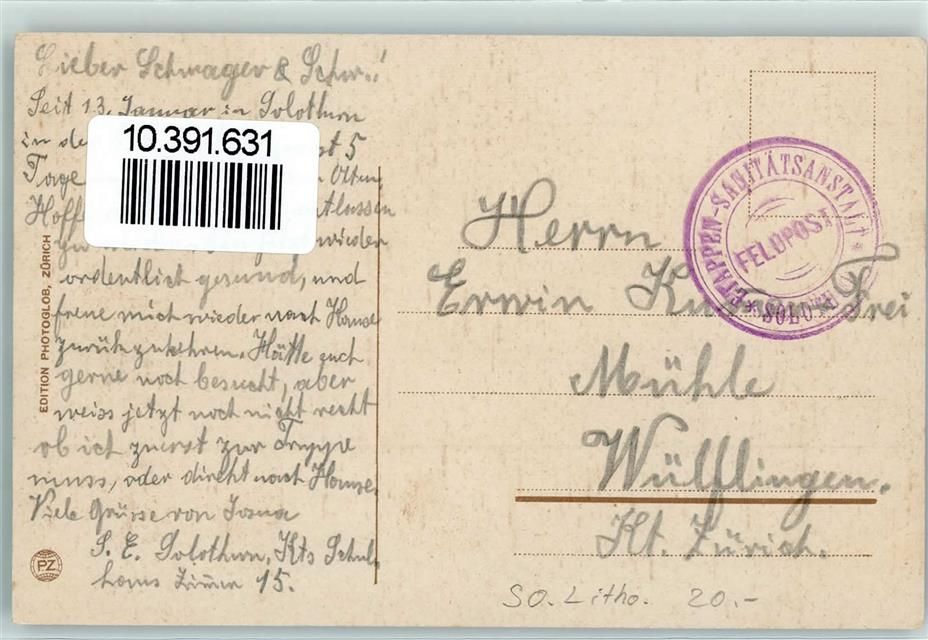 Lieber Schwager & Schw..!
Seit 13. Januar in Solothurn
in de
5
Tage Olten
Hoff entlassen
zu wieder
ordentlich gesund, und
freue mich wieder nach Hause
zurückzukehren. Hätte euch
gerne noch besucht, aber
weiss jetzt noch nicht recht
ob ich zuerst zur Truppe
muss, oder direkt nach Hause.
Viele Grüsse von
S. E. Solothurn, Kts Schul
haus Zimmer 15.
10.391.631
EDITION PHOTOGLOB, ZÜRICH
PZ
ETAPPEN-SANITÄTSANSTALT
FELDPOST
SOLOTH
Herrn
Erwin Frei
Mühle
Wülflingen.
Kt. Zürich.
SO. Litho. 20.-